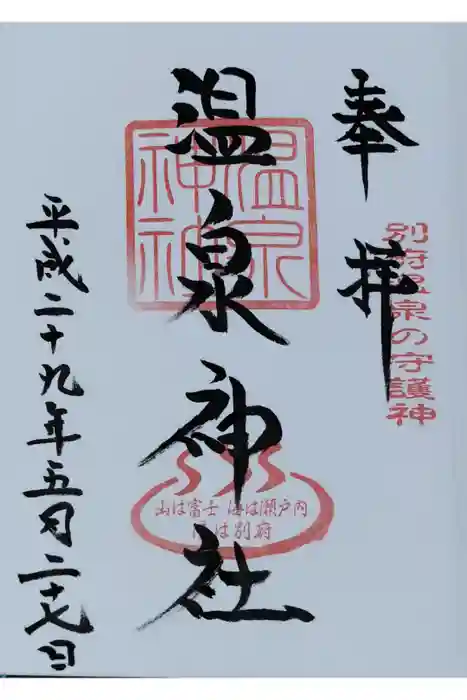 奉拝
別府温泉の守護神
温泉神社
温泉
神社
山は富士 海は瀬戸内
湯は別府
平成二十九年五月二十七日